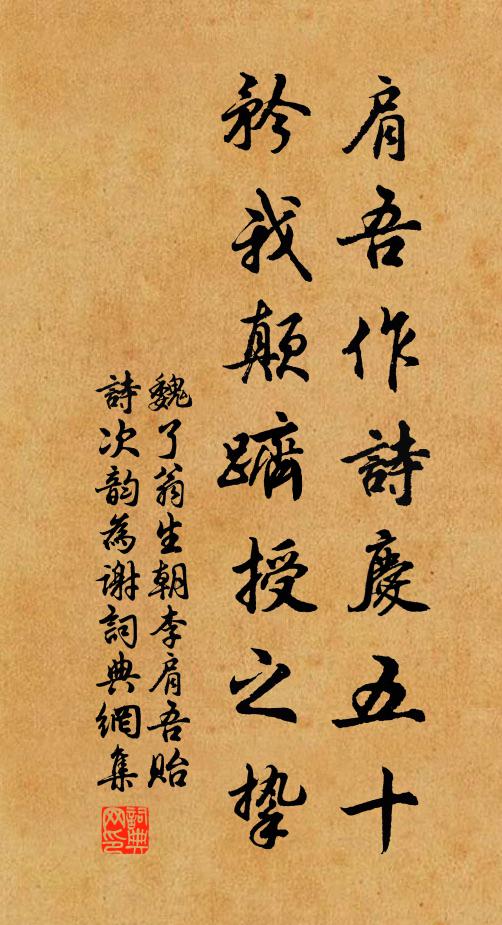 肩吾作詩慶五十
矜我顛躋授之摯
魏了翁生朝李肩吾貽
詩次韵為谢詞典網集
詞典网印